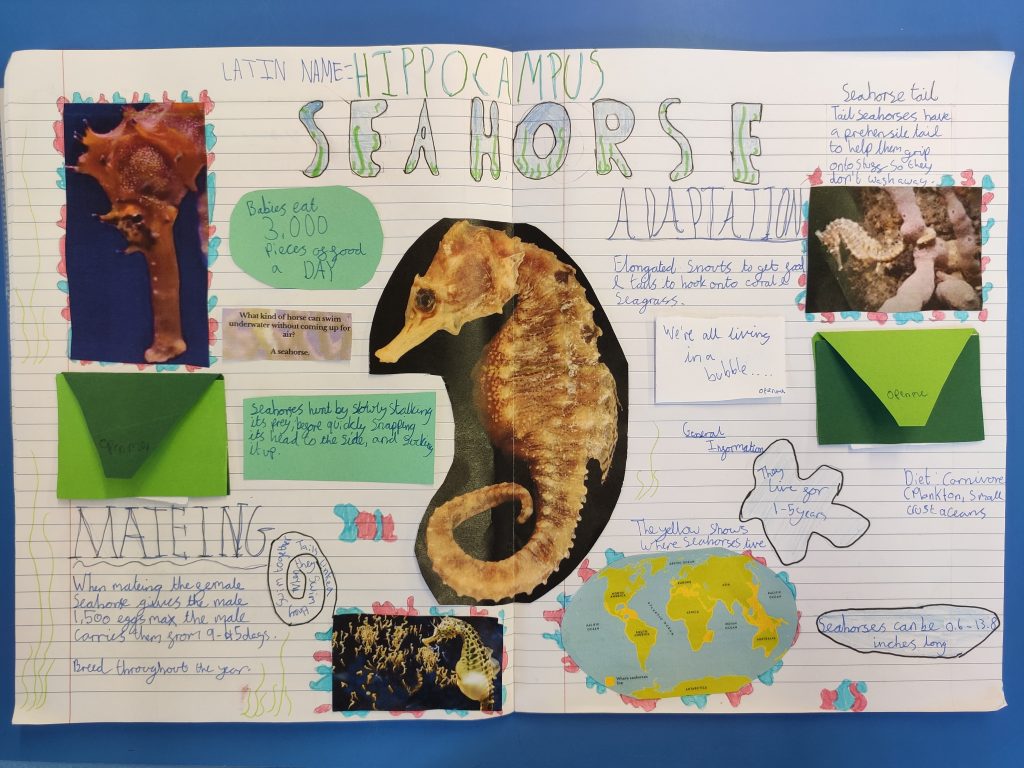 LATIN NAME=HIPPOCAMPUS
SEAHORSE
Babies eat
3,000
pieces of food
a DAY
What kind of horse can swim
underwater without coming up for
air?
A seahorse.
Seahorses hunt by slowly stalking
its prey, before quickly snapping
its head to the side, and sucking
it up.
MATEING
When mateing the female
Seahorse givves the male
1,500 eggs max the male
Carries them from 9-45days.
Breed throughout the year.
Swim together
Tails linked
Seahorse tail
Tail seahorses have
a prehensile tail
to help them grip
onto stuff so they
don't wash away.
ADAPTATION
Elongated Snouts to get food
& tails to hook onto coral &
Seagrass.
We're all living
in a
bubble....
open me
open me
General
Information
They
live for
1-5years
Diet: Carnivore
(Plankton, Small
crustaceans
The yellow shows
where Seahorses live
ARCTIC OCEAN
NORTH
AMERICA
EUROPE
ASIA
ATLANTIC OCEAN
PACIFIC
OCEAN
AFRICA
PACIFIC
OCEAN
SOUTH
AMERICA
INDIAN
OCEAN
AUSTRALIA
Where seahorses
live
ANTARCTICA
Seahorses can be 0.6-13.8
inches long